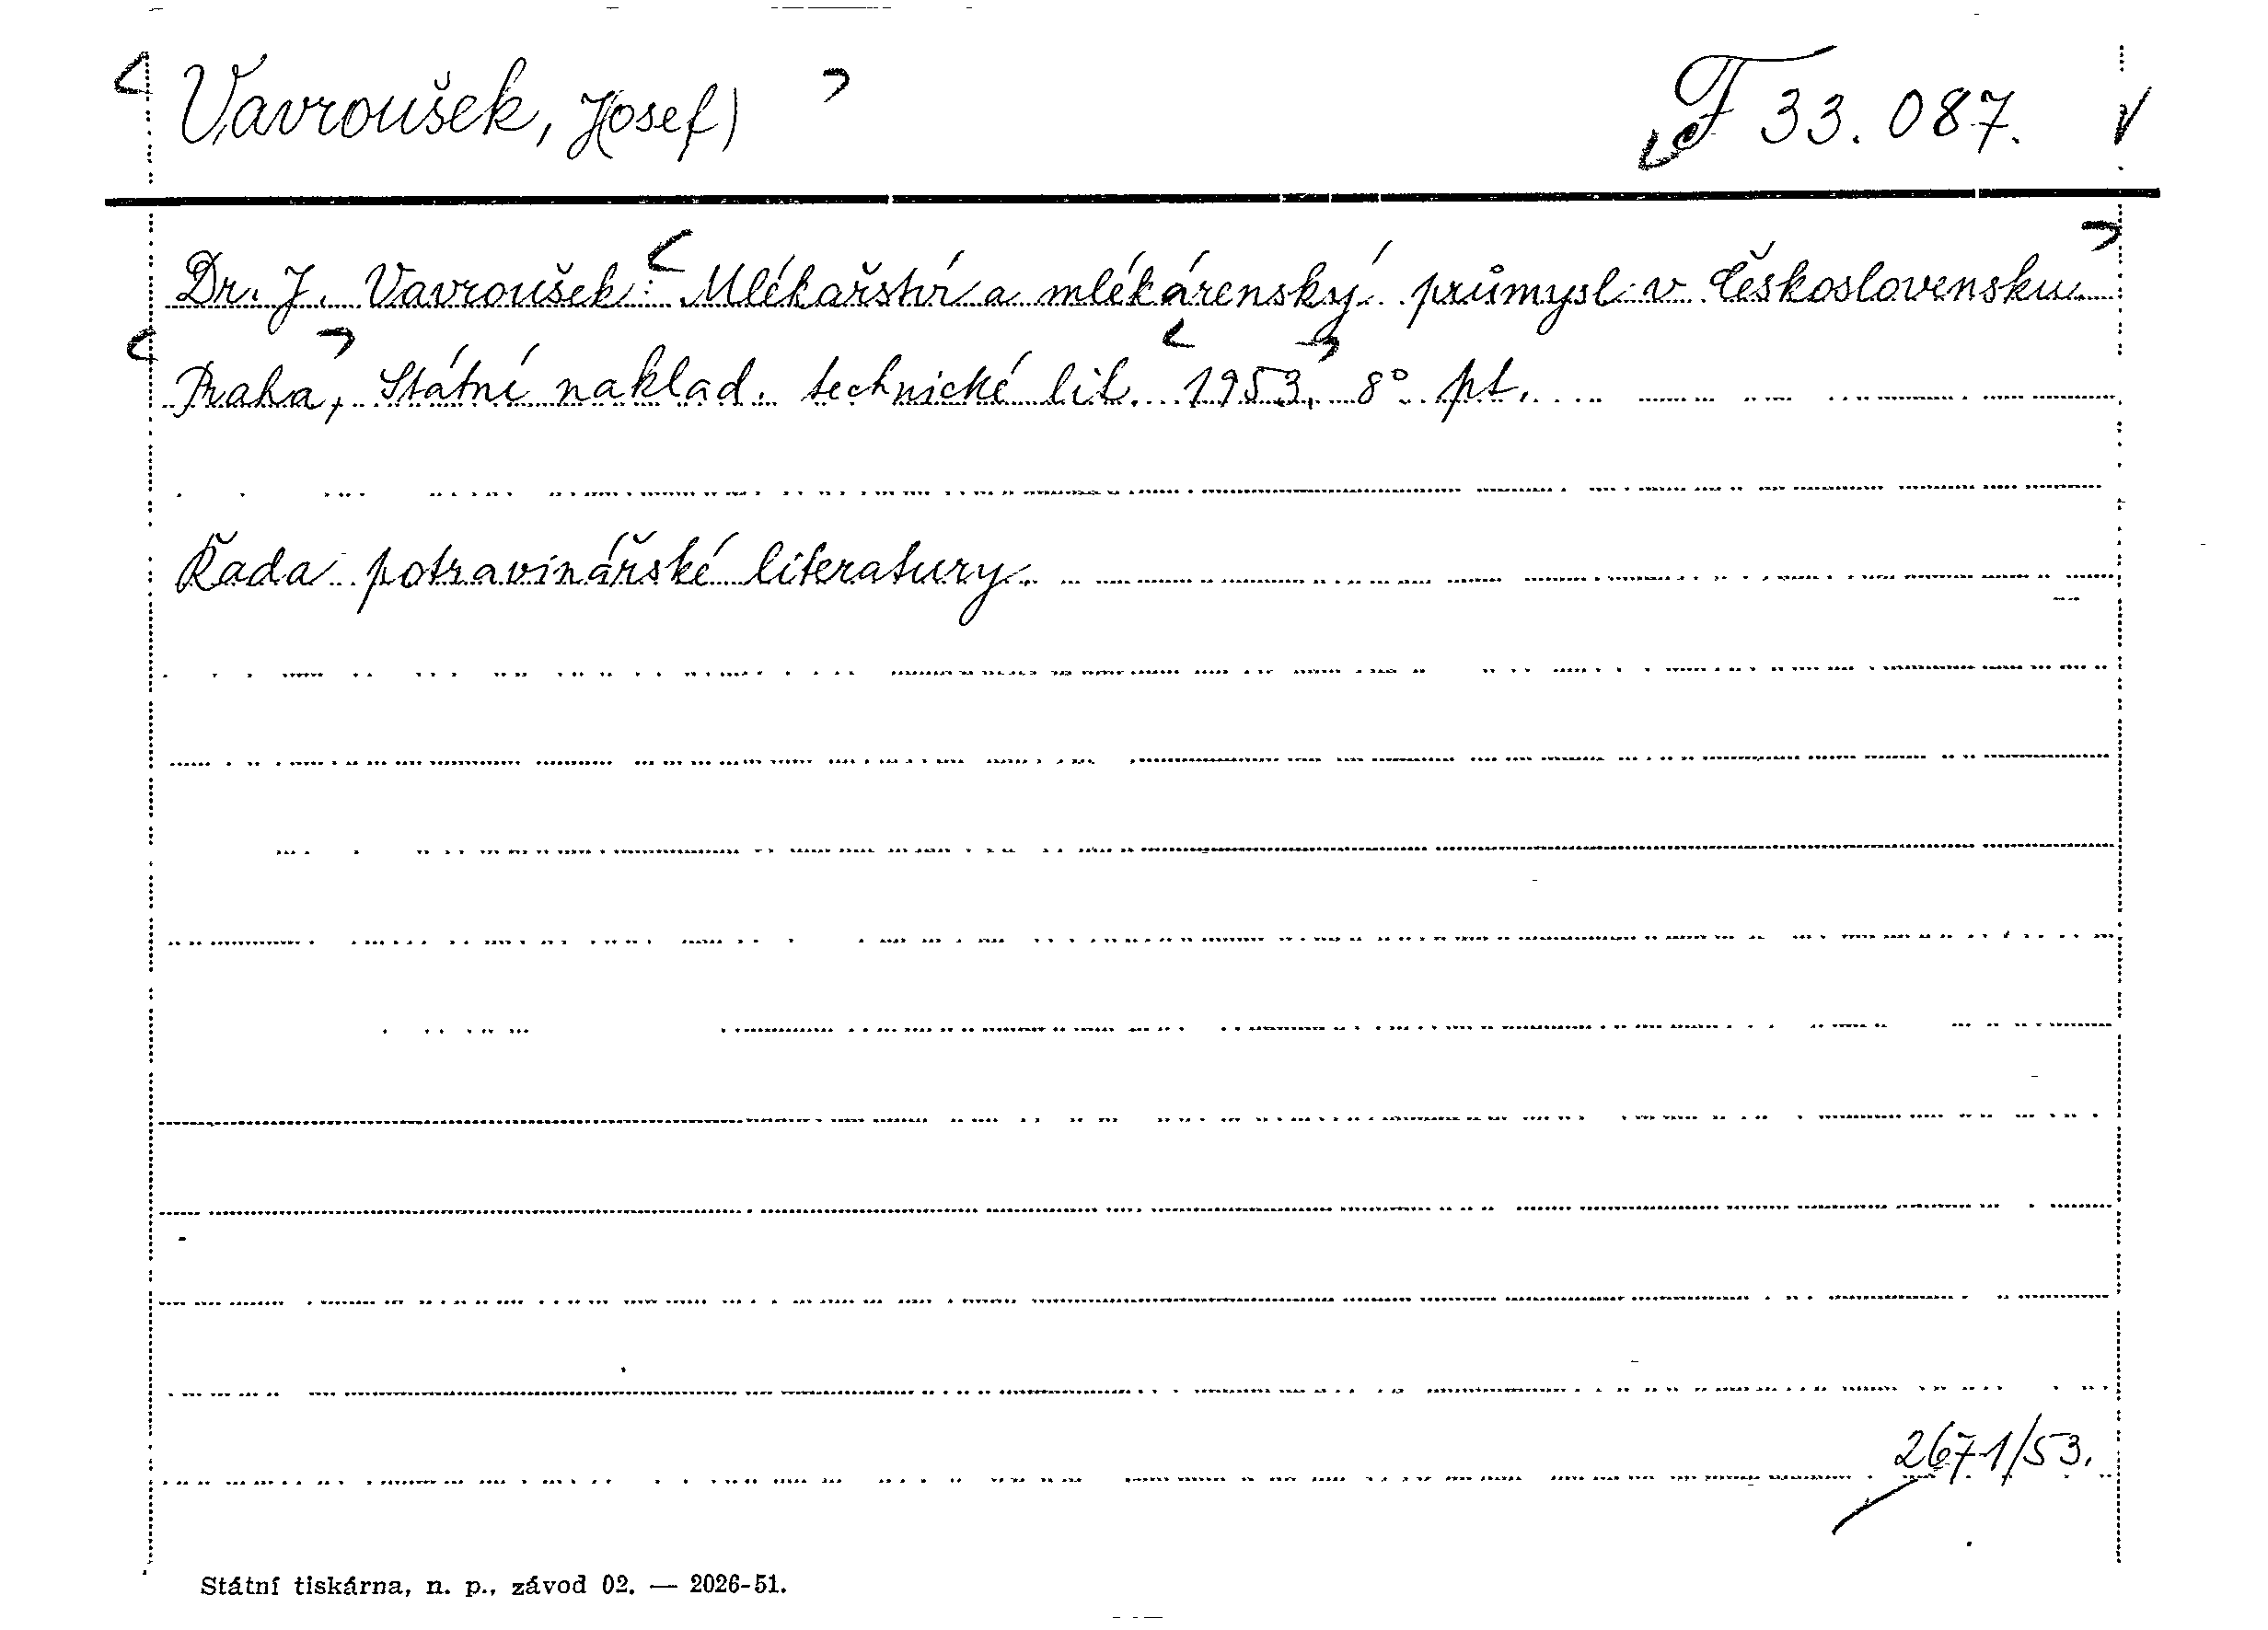 Vavroušek, J(osef) F 33.087.
Dr. J. Vavroušek: Mlékařství a mlékárenský průmysl v Československu.
Praha, Státní naklad. technické lit. 1953. 8° pt.
Řada potravinářské literatury.
2671/53.
Státní tiskárna, n. p., závod 02. — 2026-51.